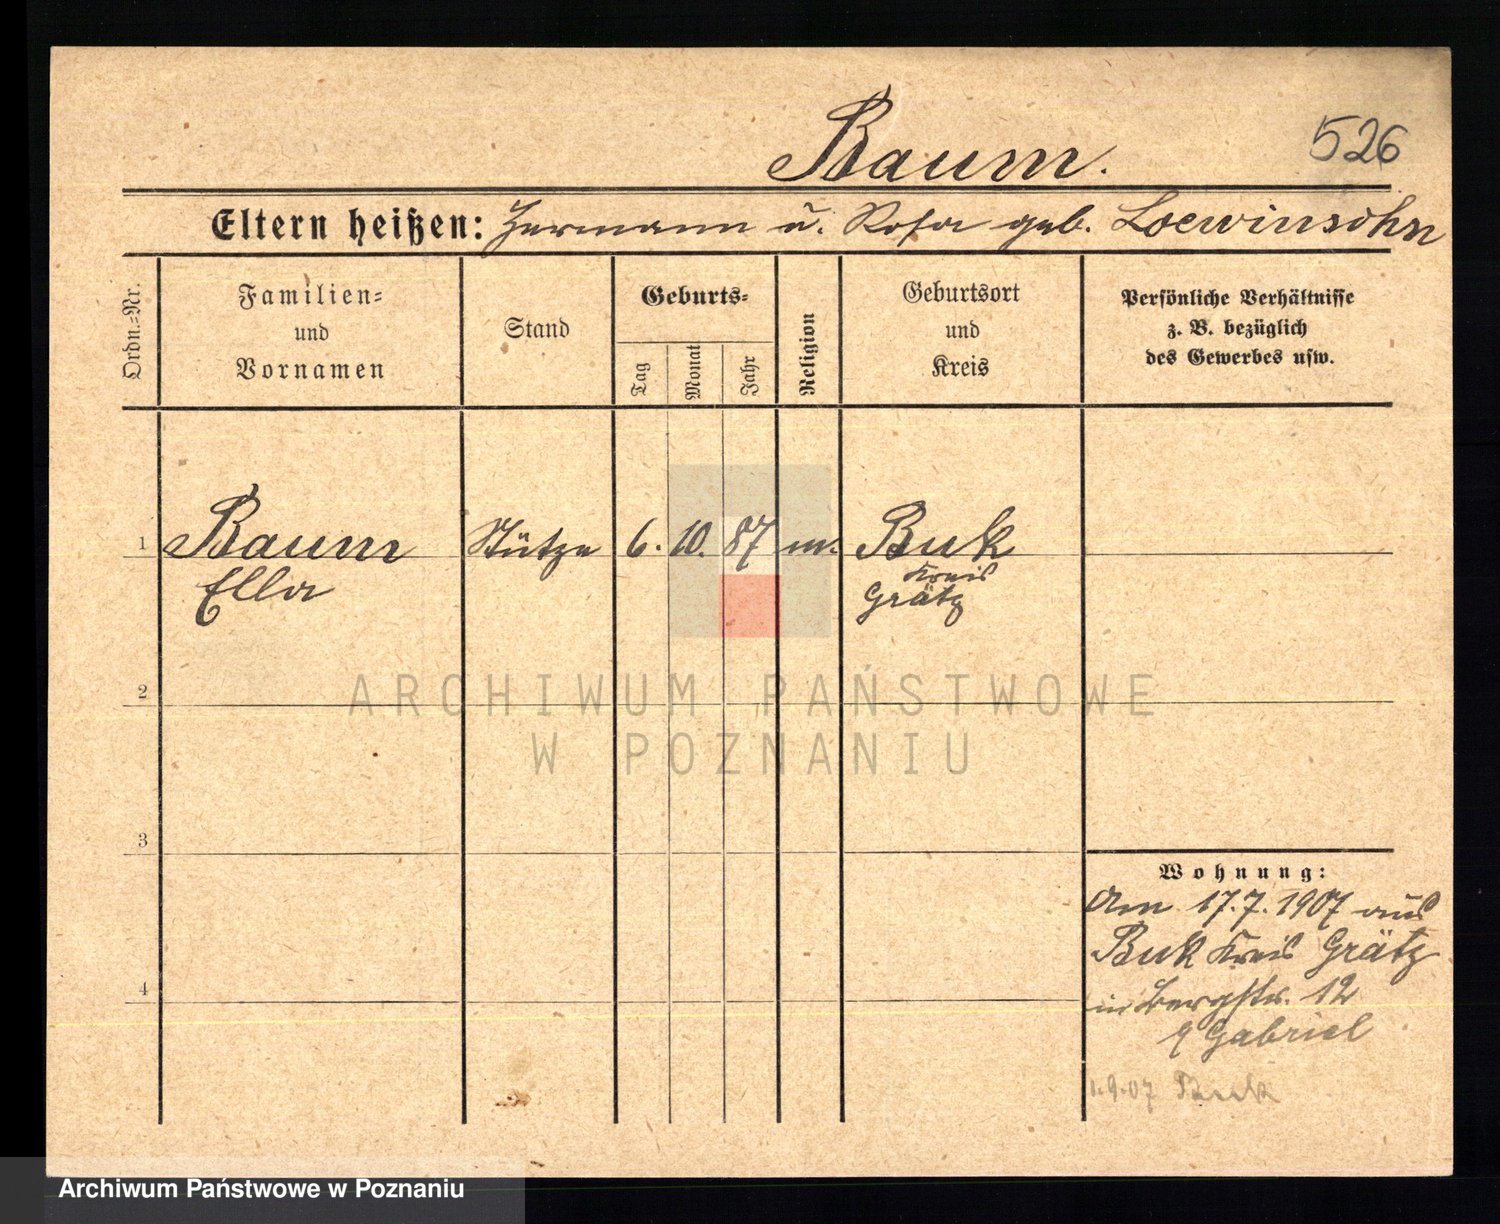 Baum.
526
Eltern heißen: Hermann u. Rosa geb. Loewinsohn
Ordn.-Nr.
Familien-
und
Vornamen
Stand
Geburts-
Tag
Monat
Jahr
Religion
Geburtsort
und
Kreis
Persönliche Verhältnisse
z. B. bezüglich
des Gewerbes usw.
1
Baum
Ella
Stütze
6.
10.
87
m.
Buk
Kreis
Grätz
2
ARCHIWUM PAŃSTWOWE
W POZNANIU
3
Wohnung:
Am 17.7.1907 aus
Buk Kreis Grätz
in Bergstr. 12
4
Gabriel
1.9.07 Buk
Archiwum Państwowe w Poznaniu